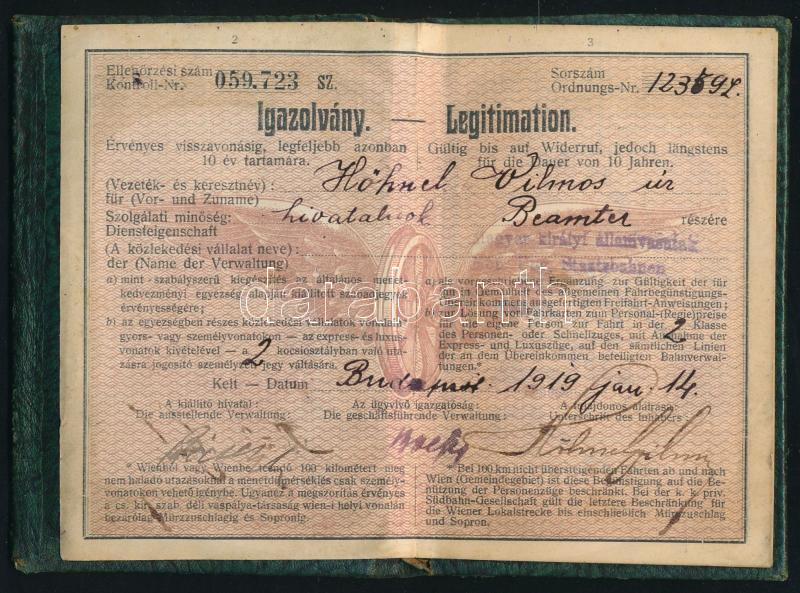 2
3
Ellenőrzési szám
Kontroll-Nr. 059.723 SZ.
Sorszám
Ordnungs-Nr.
Igazolvány. — Legitimation.
Érvényes visszavonásig, legfeljebb azonban
10 év tartamára.
Gültig bis auf Widerruf, jedoch längstens
für die Dauer von 10 Jahren.
(Vezeték- és keresztnév) : Höhnel Vilmos úr
für (Vor- und Zuname)
Szolgálati minőség: hivatalnok Beamter részére
Diensteigenschaft
(A közlekedési vállalat neve) : magyar királyi államvasutak
der (Name der Verwaltung) Staatsbahnen
a) mint szabályszerű kiegészítés az általános menet-
kedvezményi egyezség alapján kiállított szabadjegyek
érvényességére;
b) az egyezségben részes közlekedési vállalatok vonalain
gyors- vagy személyvonatokon — az express- és luxus-
vonatok kivételével — a 2 kocsiosztályban való uta-
zásra jogosító személyzeti jegy váltására.
a) als vorgeschriebene Ergänzung zur Gültigkeit der für
ihn in Gemäßheit des allgemeinen Fahrbegünstigungs-
übereinkommens ausgefertigten Freifahrt-Anweisungen;
b) zur Lösung von Fahrkarten zum Personal-(Regie)preise
für die eigene Person zur Fahrt in der 2 Klasse
des Personen- oder Schnellzuges, mit Ausnahme der
Express- und Luxuszüge, auf den sämtlichen Linien
der an dem Übereinkommen beteiligten Bahnverwal-
tungen.
Kelt — Datum Budapest 1919 jan. 14.
A kiállító hivatal :
Die ausstellende Verwaltung:
Az ügyvivő igazgatóság :
Die geschäftsführende Verwaltung :
A tulajdonos aláírása:
Unterschrift des Inhabers
* Wienből vagy Wienbe teendő 100 kilométert meg
nem haladó utazásoknál a menetdíjmérséklés csak személy-
vonatokon vehető igénybe. Ugyanez a megszorítás érvényes
a cs. kir. szab. déli vaspálya-társaság wien-i helyi vonalán
bezárólag Mürzzuschlagig és Sopronig.
* Bei 100 km nicht übersteigenden Fahrten ab und nach
Wien (Gemeindegebiet) ist diese Begünstigung auf die Be-
nützung der Personenzüge beschränkt. Bei der k. k. priv.
Südbahn-Gesellschaft gilt die letztere Beschränkung für
die Wiener Lokalstrecke bis einschließlich Mürzzuschlag
und Sopron.
darabanth